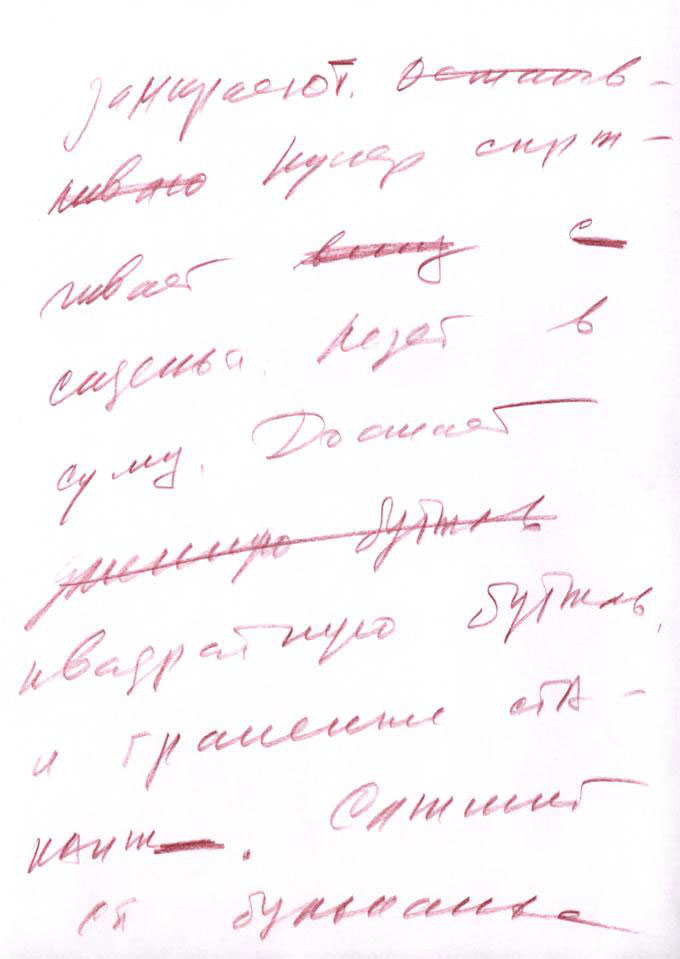 замирают. Останав-
ливаю кучер спры-
гивает с
сиденья. Лезет в
суму. Достает
бутыль
квадратную бутыль,
и граненые ста-
каны. Слышит
ся бульканье